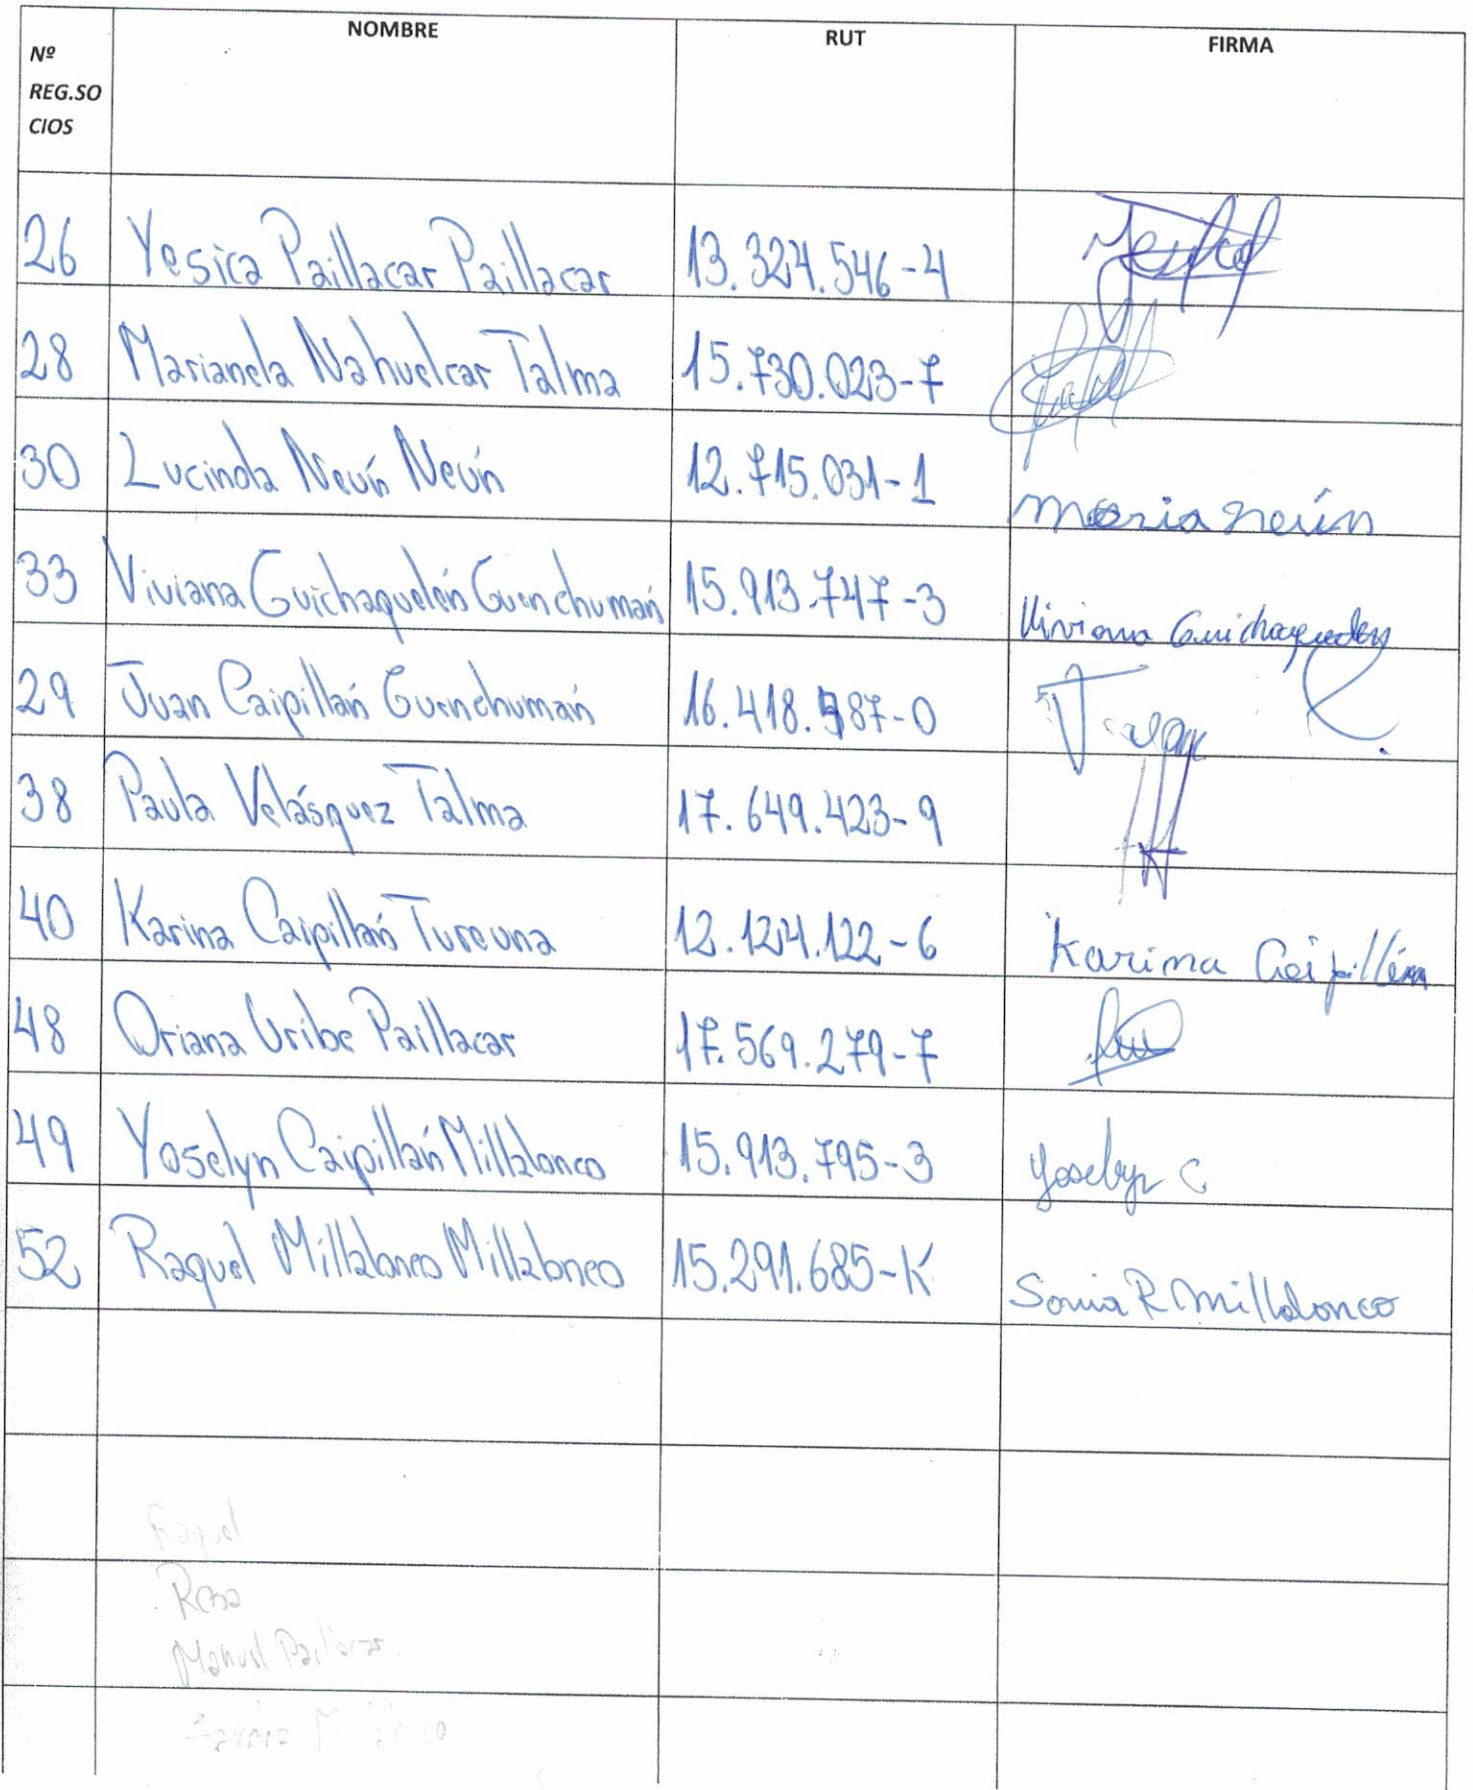 Nº REG.SO CIOS NOMBRE RUT FIRMA
26 Yesica Paillacar Paillacar 13.324.546-4
28 Marianela Nahuelcar Talma 15.730.023-7
30 Lucinda Neún Neún 12.715.031-1 Maria Neún
33 Viviana Guichaquelén Guenchumán 15.913.747-3 Viviana Guichaquelen
29 Juan Caipillán Guenchumán 16.418.987-0
38 Paula Velásquez Talma 17.649.423-9
40 Karina Caipillán Tureuna 12.124.122-6 Karina Caipillán
48 Oriana Uribe Paillacar 17.569.279-7
49 Yoselyn Caipillán Millalonco 15.913.795-3 Yoselyn C
52 Raquel Millalonco Millalonco 15.291.685-K Sonia R Millalonco
Raquel
Rosa
Manuel Paillacar